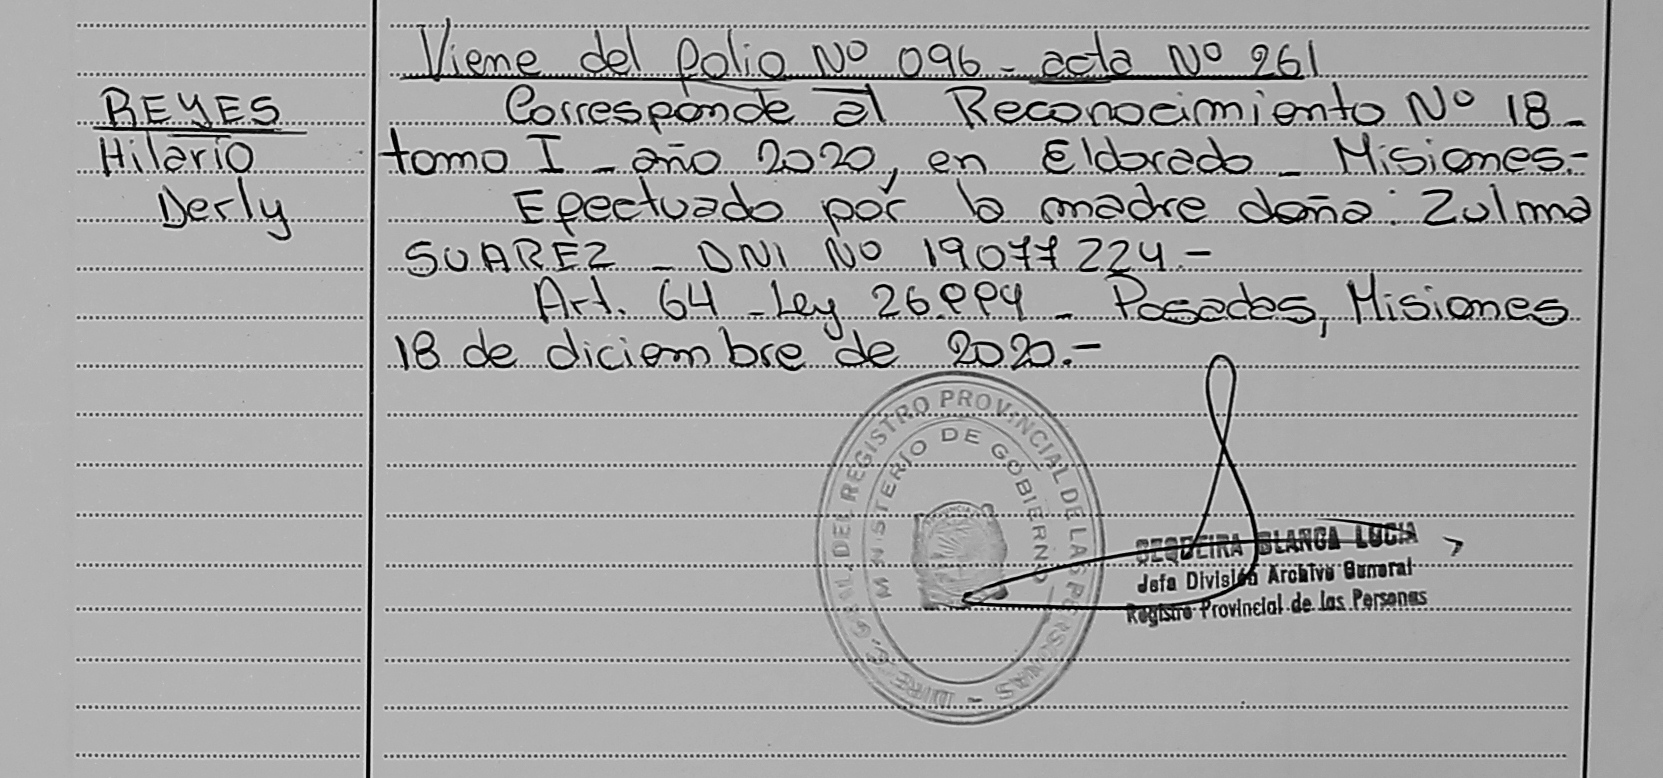 Viene del folio Nº 096 - acta Nº 261
REYES
Hilario
Derly
Corresponde al Reconocimiento Nº 18 -
tomo I - año 2020, en Eldorado - Misiones.-
Efectuado por la madre doña: Zulma
SUAREZ - DNI Nº 19077224.-
Art. 64 - Ley 26.994 - Posadas, Misiones
18 de diciembre de 2020.-
DIREC. GRAL. DEL REGISTRO PROVINCIAL DE LAS PERSONAS -
MINISTERIO DE GOBIERNO
SEQUEIRA BLANCA LUCIA
Jefa División Archivo General
Registro Provincial de las Personas